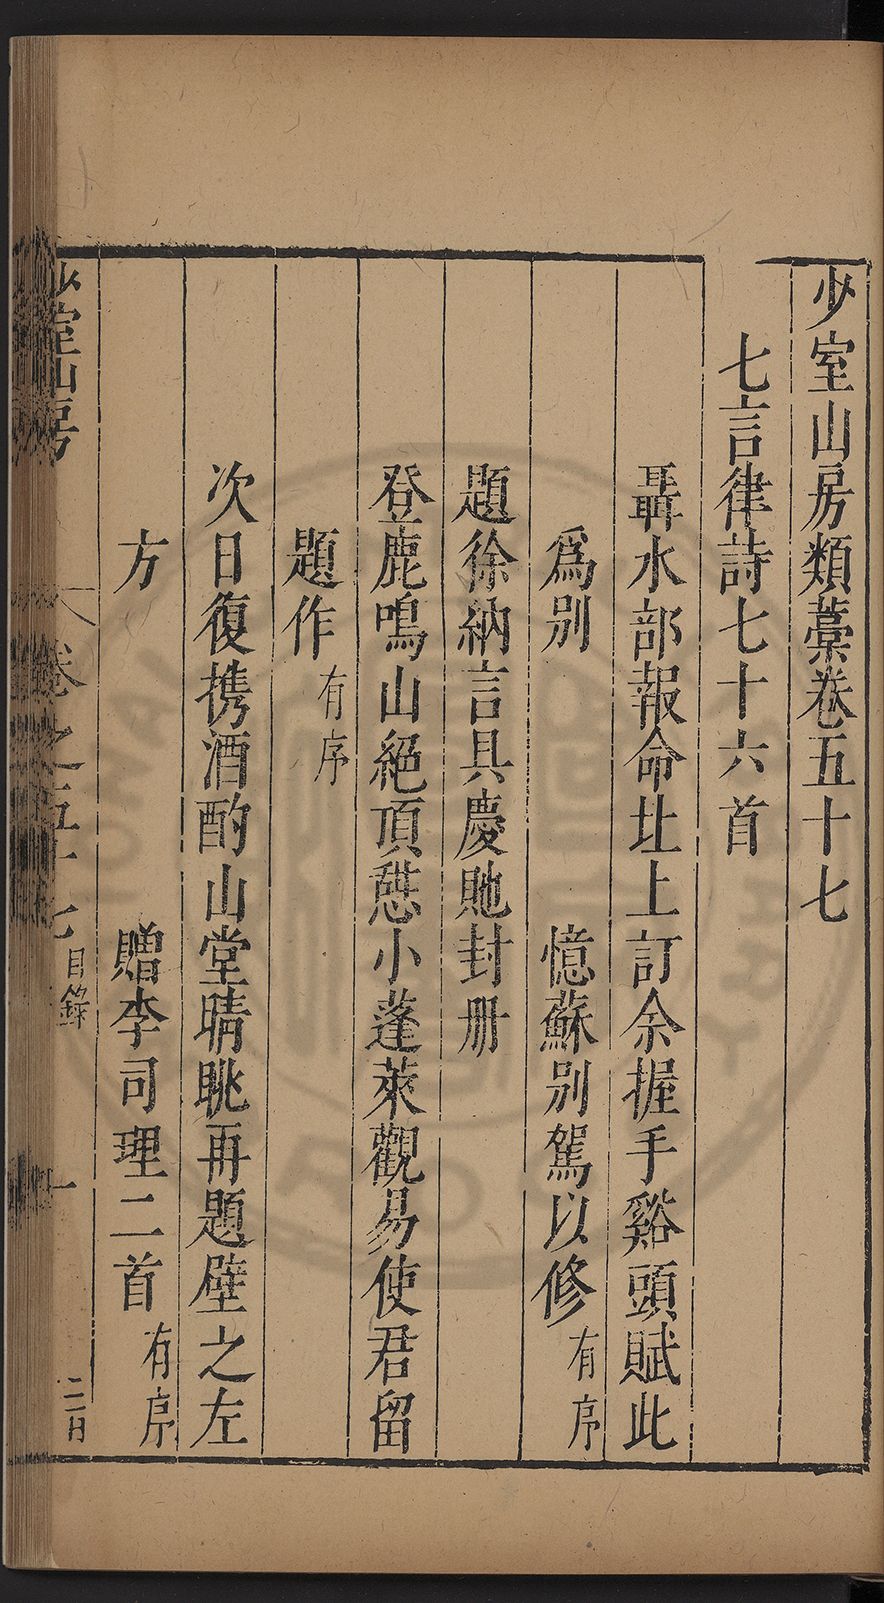 少室山房類藁卷五十七
七言律詩七十六首
聶水部報命北上訂余握手谿頭賦此
爲別 憶蘇別駕以修有序
題徐納言具慶貤封册
登鹿鳴山絕頂憇小蓬萊觀易使君留
題作有序
次日復携酒酌山堂晴眺再題壁之左
方 贈李司理二首有序
少室山房 卷之五十七目錄 一